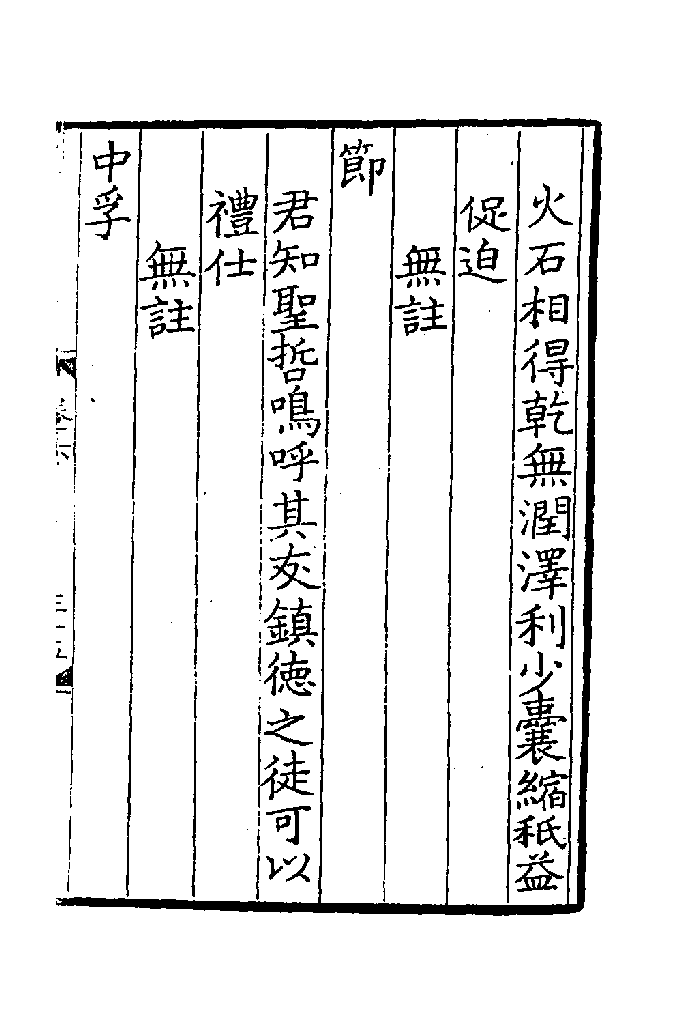 火石相得乾無潤澤利少囊縮秖益
促迫
無註
節
君知聖哲鳴呼其友鎮德之徒可以
禮仕
無註
中孚